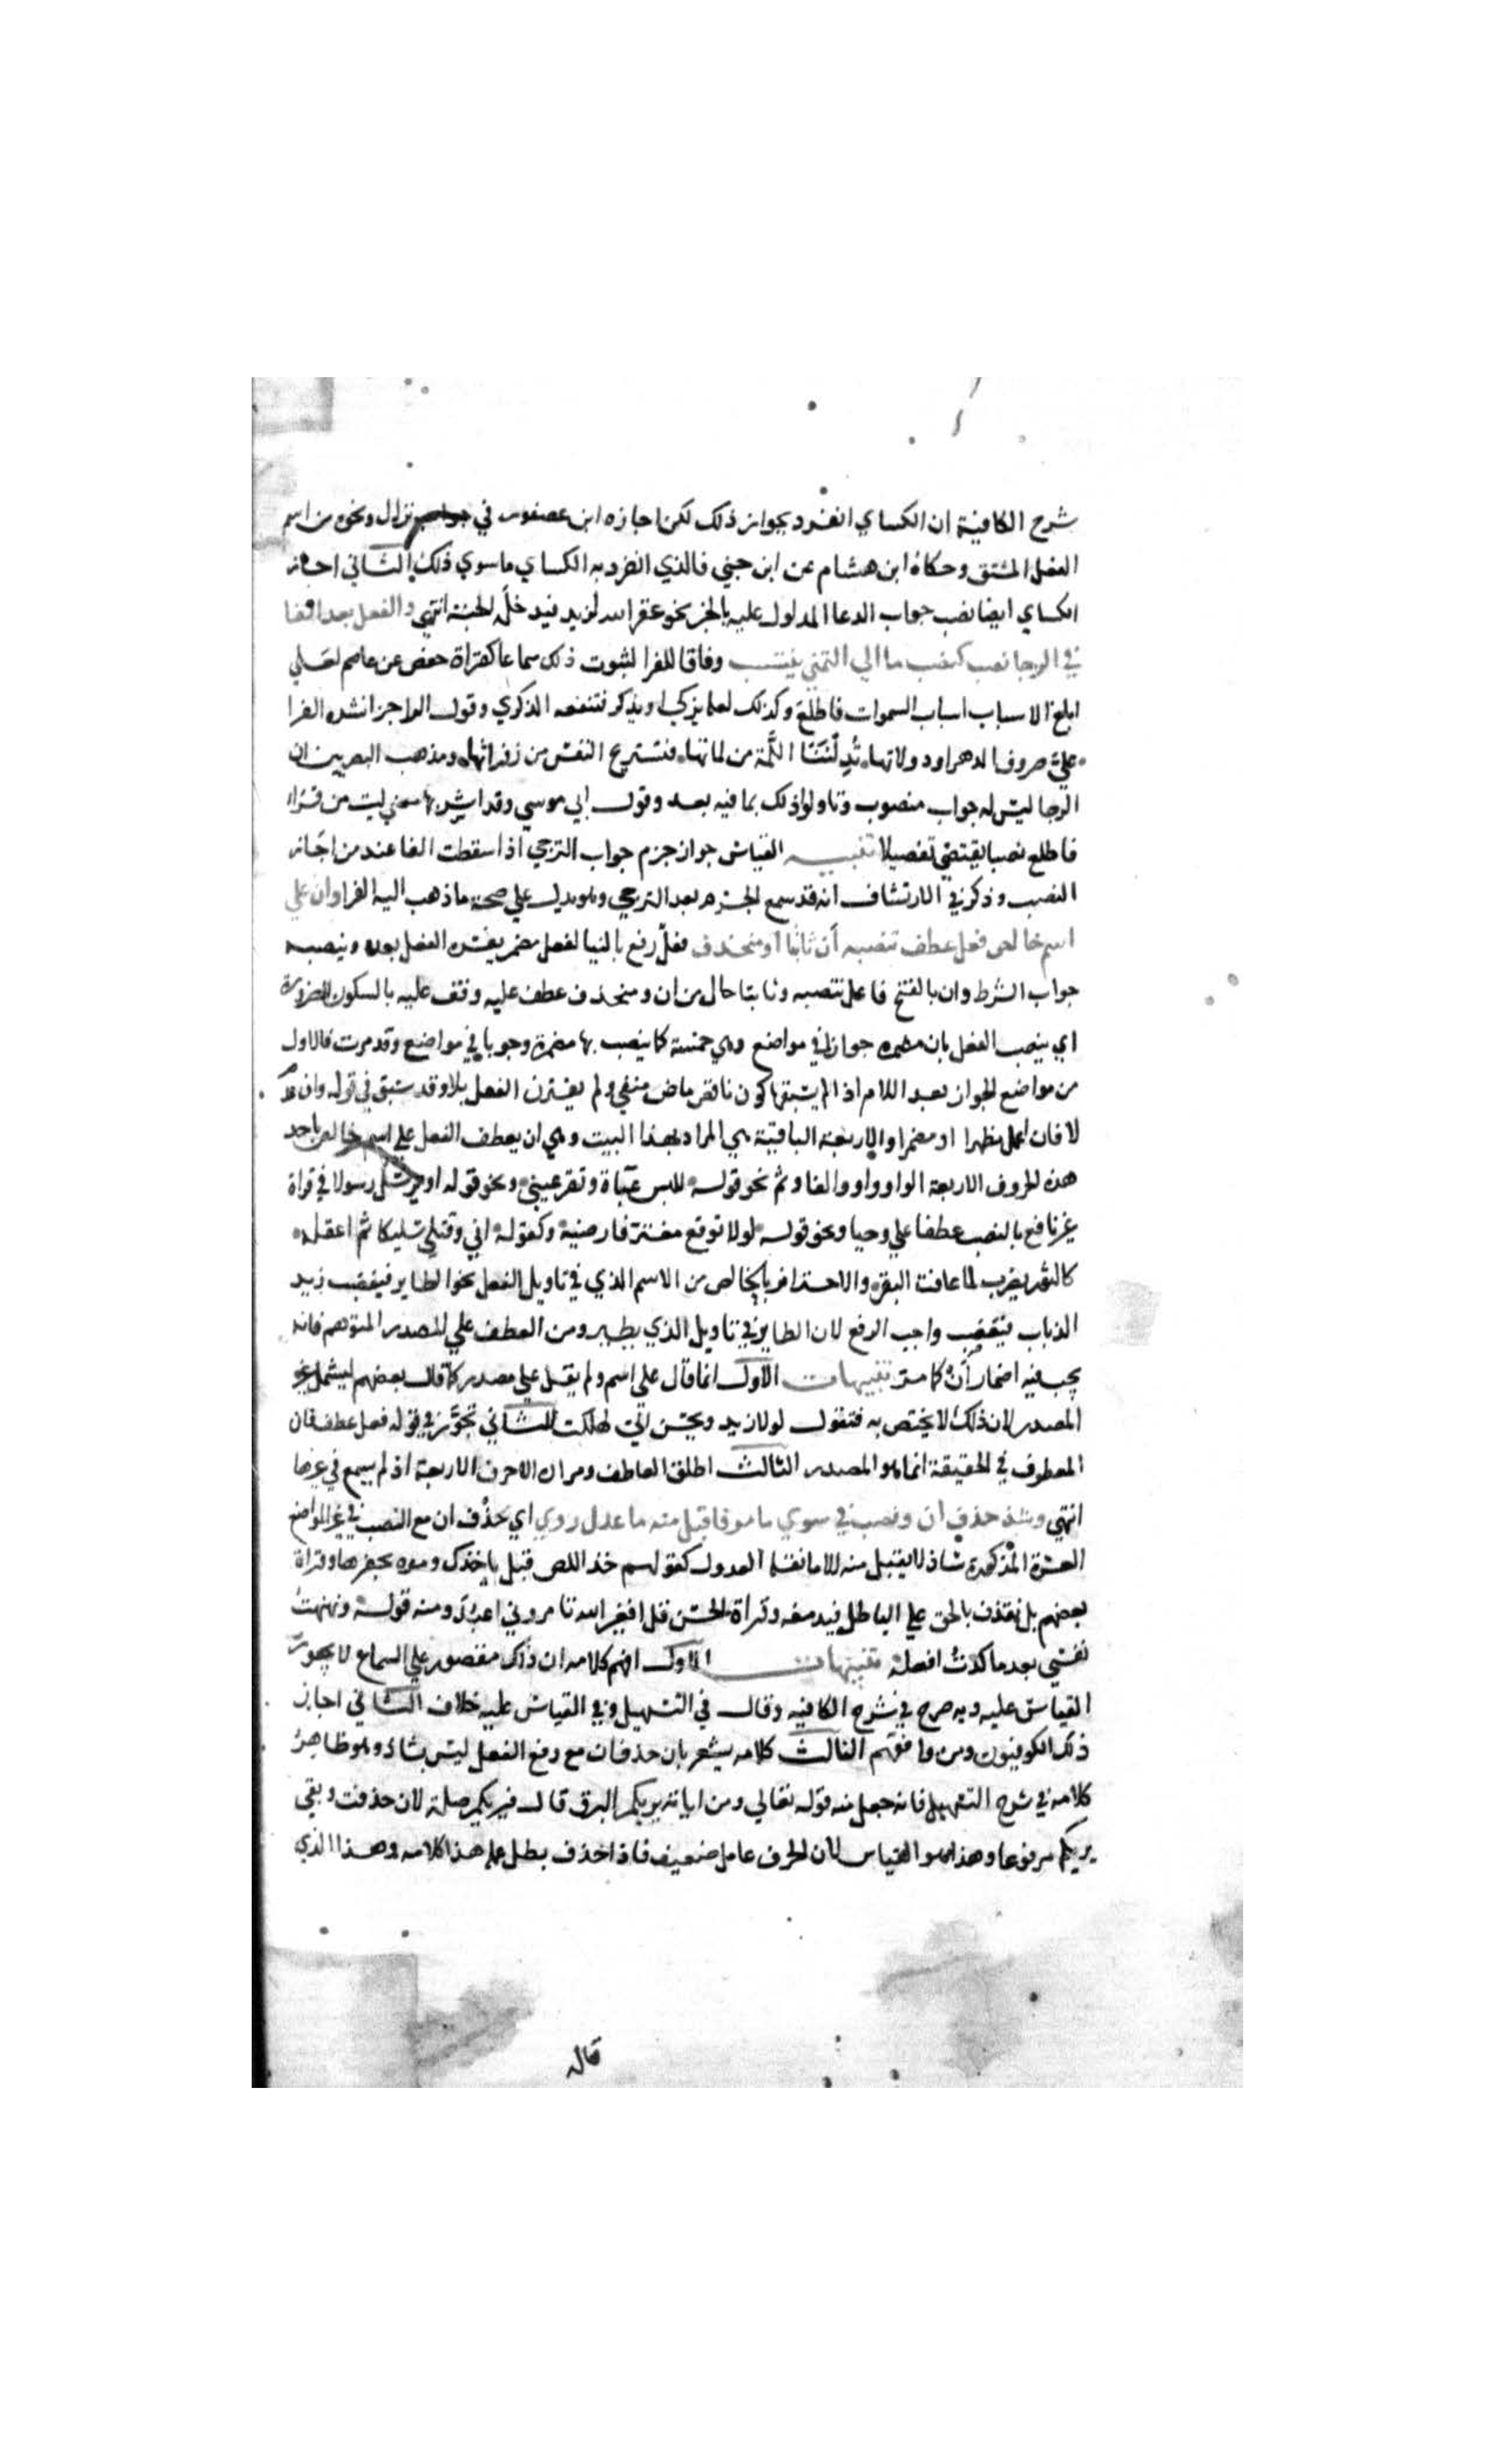 شرح الكافية ان الكساي انفرد بجواز ذلك لكن اجازه ابن عصفور في نزال ونحوه من اسم
الفعل المشتق وحكاه ابن هشام عن ابن جني فالذي انفرد به الكساي ما سوي ذلك الثاني اجاز
الكساي ايضا نصب جواب الدعا المدلول عليه بالخبر نحو غفر الله لزيد فيدخله الجنة انتهي والفعل بعد الفا
في الرجا نصب كنصب ما الي التمني ينتسب وفاقا للفرا لثبوت ذلك سماعا كقراة حفص عن عاصم لعلي
ابلغ الاسباب اسباب السموات فاطلع وكذلك لعله يزكي او يذكر فتنفعه الذكري وقول الراجز انشده الفرا
علّ صروف الدهر او دولاتها تُدِلْنَنَا اللَّمَّة من لماتها فتستريح النفس من زفراتها ومذهب البصريين ان
الرجا ليس له جواب منصوب وتاولوا ذلك بما فيه بعد وقول ابي موسي وقد اشربها معني ليت من قراء
فاطلع نصبا يقتضي تفصيلا تنبيه القياس جواز جزم جواب الترجي اذا سقطت الفا عند من اجاز
النصب وذكر في الارتشاف انه قد سمع الجزم بعد الترجي وهو يدل علي صحة ما ذهب اليه الفرا وان علي
اسم خالص فعل عطف تنصبه أن ثابتا او منحذف فعل رفع بالنيابة لفعل مضمر يفسره الفعل بعده وينصبه
جواب الشرط وان بالفتح فاعل تنصبه وثابتا حال من ان ومنحذف عطف عليه وقف عليه بالسكون للضرورة
اي ينصب الفعل بان مضمره جوازا في مواضع وهي خمسة كما ينصب بها مضمرة وجوبا في مواضع وقد مرت فالاول
من مواضع الجواز بعد اللام اذا لم يسبقها كون ناقص ماض منفي ولم يقترن الفعل بلا وقد سبق في قوله وان عدم
لا فان اعمل مظهرا او مضمرا والاربعة الباقية هي المراد بهذا البيت وهي ان يعطف الفعل علي اسم خالص باحد
هذه الحروف الاربعة الواو واو والفا وثم نحو قوله للبس عباة وتقر عيني ونحو قوله او يرسل رسولا في قراة
غير نافع بالنصب عطفا علي وحيا ونحو قوله لولا توقع معتز فارضيه وكقوله اني وقتلي سليكا ثم اعقله
كالثور يضرب لما عافت البقر والاحتراز بالخالص من الاسم الذي في تاويل الفعل نحو الطاير فيغضب زيد
الذباب فيغضب واجب الرفع لان الطاير في تاويل الذي يطير ومن العطف علي المصدر المتوهم فانه
يجب فيه اضمار أن كما مر تنبيهات الاول انما قال علي اسم ولم يقل علي مصدر كما قال بعضهم ليشمل غير
المصدر لان ذلك لا يختص به فتقول لولا زيد ويحسن الي لهلكت الثاني تجوز في قوله فعل عطف فان
المعطوف في الحقيقة انما هو المصدر الثالث اطلق العاطف ومراده الاحرف الاربعة اذ لم يسمع في غيرها
انتهي وشذ حذف ان ونصب في سوي ما مر فاقبل منه ما عدل روي اي حذف ان مع النصب في غير المواضع
العشرة المذكورة شاذ لا يقبل منه الا ما نقله العدول كقولهم خذ اللص قبل ياخذك ومره يحفرها وقراة
بعضهم بل نقذف بالحق علي الباطل فيدمغه وقراة الحسن قل افغير الله تامروني اعبد ومنه قوله ونهنهت
نفسي بعد ما كدت افعله تنبيهات الاول افهم كلامه ان ذلك مقصور علي السماع لا يجوز
القياس عليه وبه صرح في شرح الكافيه وقال في التسهيل وفي القياس عليه خلاف الثاني اجاز
ذلك الكوفيون ومن وافقهم الثالث كلامه يشعر بان حذف ان مع رفع الفعل ليس بشاذ وهو ظاهر
كلامه في شرح التسهيل فانه جعل منه قوله تعالي ومن اياته يريكم البرق قال فيريكم صلة لان حذفت وبقي
يريكم مرفوعا وهذا هو القياس لان الحرف عامل ضعيف فاذا حذف بطل عمله هذا كلامه وهذا الذي
قاله